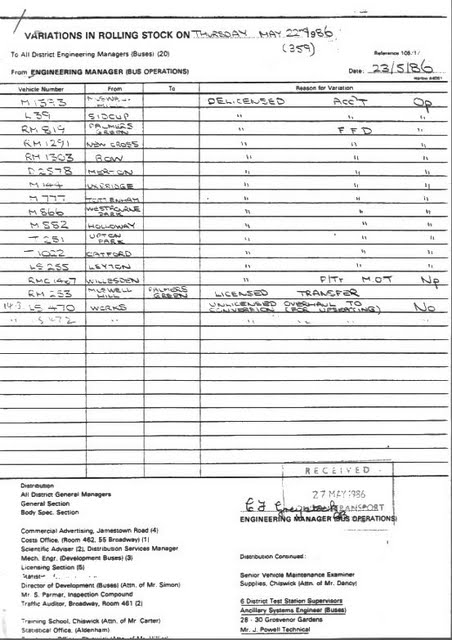 VARIATIONS IN ROLLING STOCK ON THURSDAY MAY 22nd 1986
(359)
To All District Engineering Managers (Buses) (20)
Reference 108/1/
From ENGINEERING MANAGER (BUS OPERATIONS)
Date: 23/5/86
Vehicle Number From To Reason for Variation
M1333 MUSWELL HILL DELICENSED ACC'T Op
L39 SIDCUP " " "
RM 819 PALMERS GREEN " F F D "
RM 1291 NEW CROSS " " "
RM 1303 BOW " " "
D2578 MERTON " " "
M144 UXBRIDGE " " "
M777 TOTTENHAM " " "
M866 WESTBOURNE PARK " " "
M552 HOLLOWAY " " "
T251 UPTON PARK " " "
T1022 CATFORD " " "
LS255 LEYTON " " "
RMC1467 WILLESDEN " FITr M.O.T Np
RM 253 MUSWELL HILL PALMERS GREEN LICENSED TRANSFER
LS 470 WORKS UNLICENSED OVERHAUL TO CONVERSION (FOR UPSEATING) No
" S472 " " " "
RECEIVED
27 MAY 1986
TRANSPORT
ENGINEERING MANAGER (BUS OPERATIONS)
Distribution
All District General Managers
General Section
Body Spec. Section
Commercial Advertising, Jamestown Road (4)
Costs Office, (Room 462, 55 Broadway) (1)
Scientific Adviser (2), Distribution Services Manager
Mech. Engr. (Development Buses) (3)
Licensing Section (5)
Director of Development (Buses) (Attn. of Mr. Simon)
Mr. S. Parmar, Inspection Compound
Traffic Auditor, Broadway, Room 461 (2)
Training School, Chiswick (Attn. of Mr. Carter)
Statistical Office, (Aldenham)
Distribution Continued:
Senior Vehicle Maintenance Examiner
Supplies, Chiswick (Attn. of Mr. Dancy)
6 District Test Station Supervisors
Ancillary Systems Engineer (Buses)
28 - 30 Grosvenor Gardens
Mr. J. Powell Technical